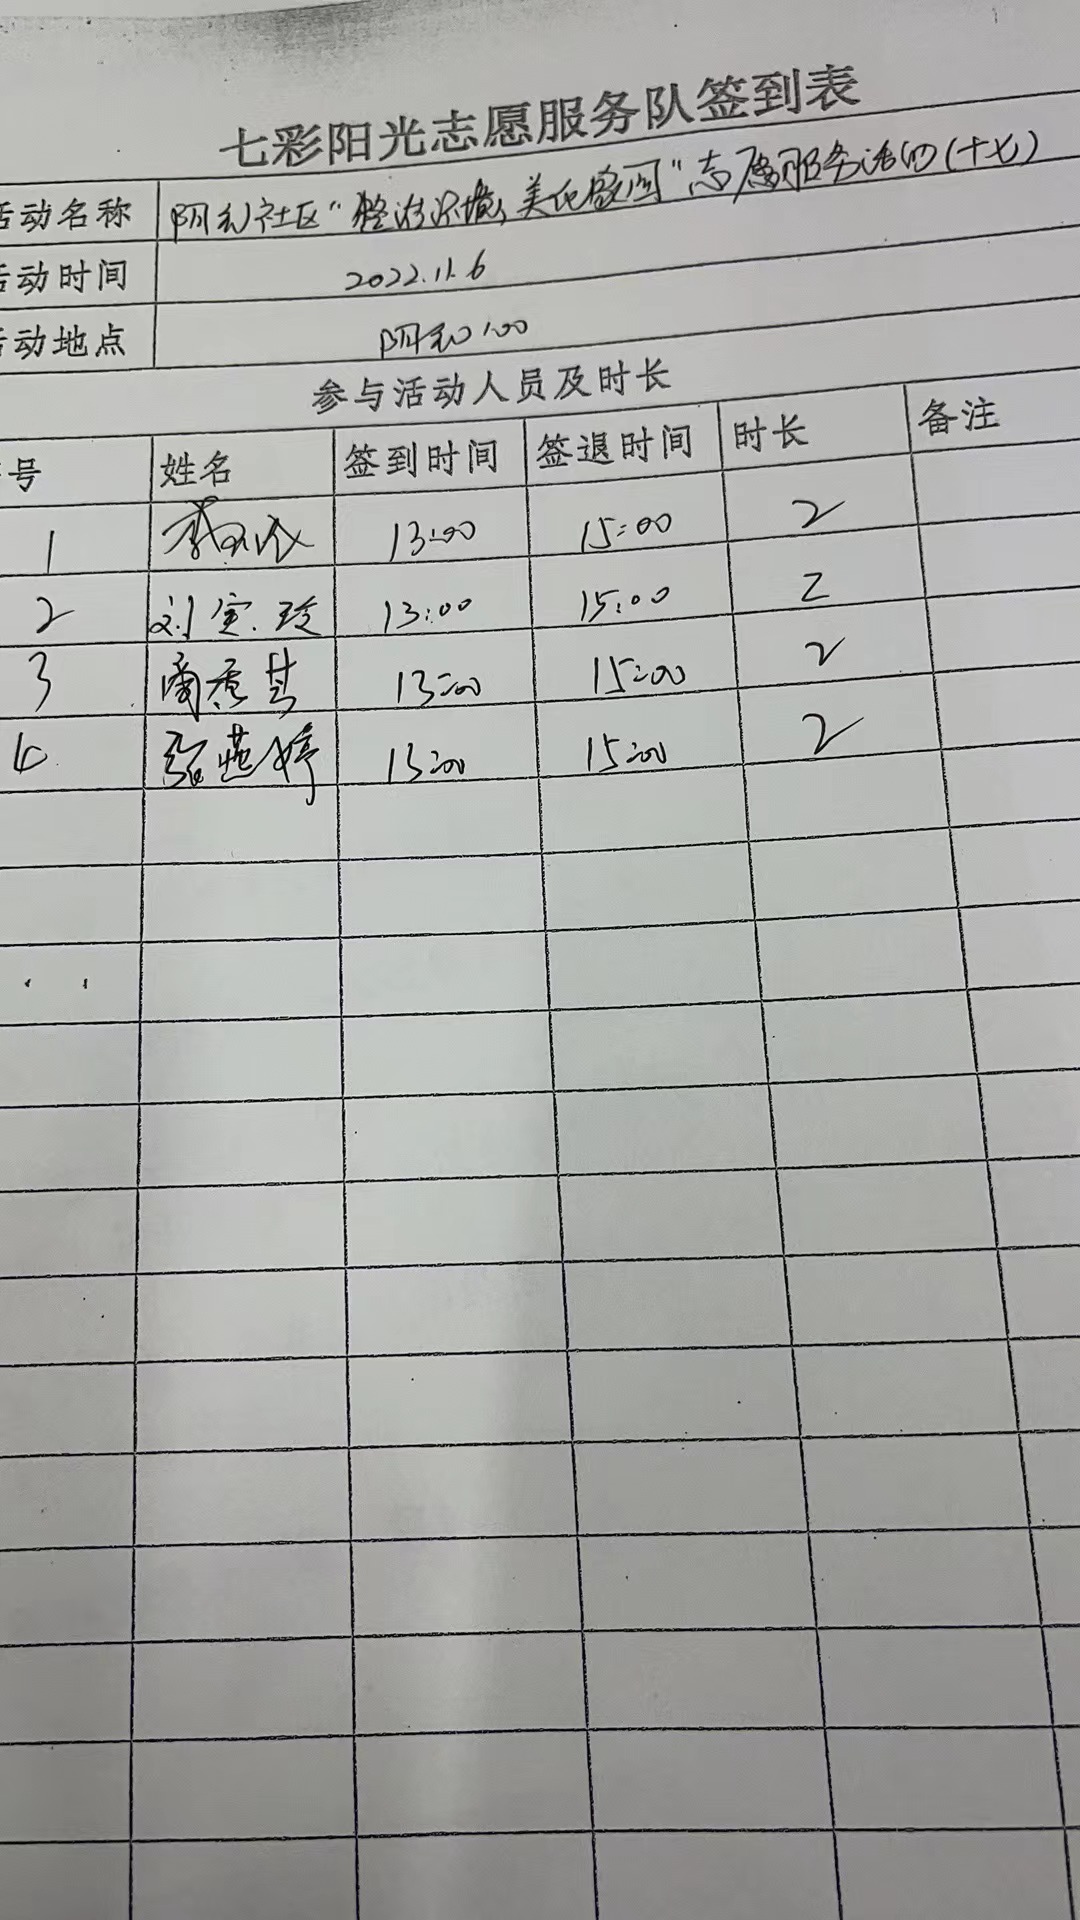 七彩阳光志愿服务队签到表
活动名称 阳和社区"整治环境，美化家园"志愿服务活动(十七)
活动时间 2022.11.6
活动地点 阳和
参与活动人员及时长
号 姓名 签到时间 签退时间 时长 备注
1 13:00 15:00 2
2 刘 13:00 15:00 2
3 13:00 15:00 2
4 张燕婷 13:00 15:00 2